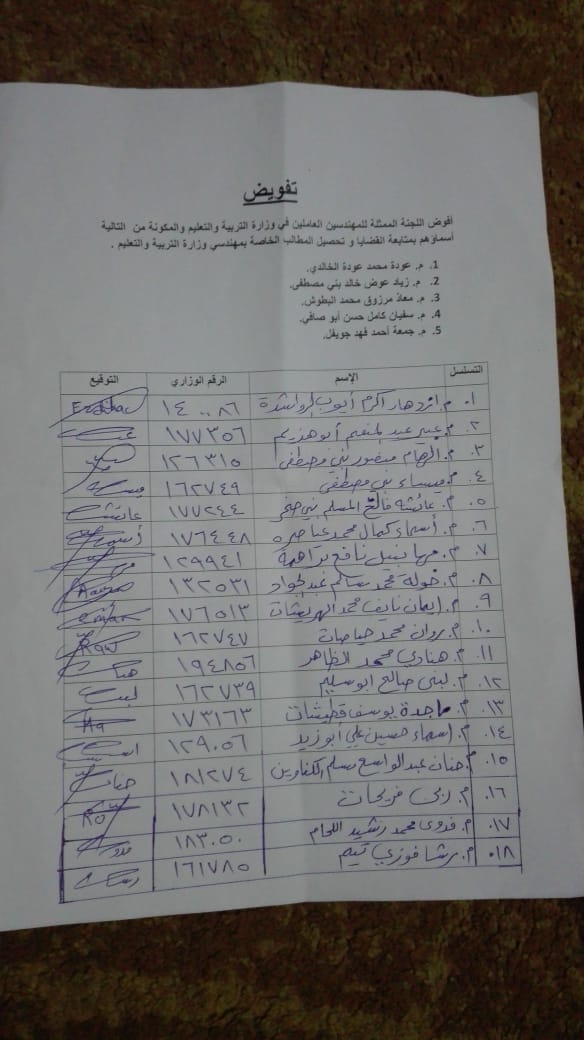 تفويض
أفوض اللجنة الممثلة للمهندسين العاملين في وزارة التربية والتعليم والمكونة من التالية
أسماؤهم بمتابعة القضايا و تحصيل المطالب الخاصة بمهندسي وزارة التربية والتعليم .
1. م. عودة محمد عودة الخالدي.
2. م. زياد عوض خالد بني مصطفى.
3. م. معاذ مرزوق محمد البطوش.
4. م. سفيان كامل حسن أبو صافي.
5. م. جمعة أحمد فهد جويفل.
التسلسل الإسم الرقم الوزاري التوقيع
١. م. ازدهار اكرم أيوب الرواشدة ١٤٠٠٨٦
٢. م. عبير عبد المنعم أبو هزيم ١٧٧٣٥٦
٣. م. الهام منصور بني مصطفى ١٢٦٣١٥
٤. م. ميساء بني مصطفى ١٦٢٧٤٩
٥. م. عائشة فالح المسلم بني صخر ١٧٧٢٤٤ عائشة
٦. م. أسماء كمال محمد عناصره ١٧٦٤٤٨
٧. م. مها نبيل نافع براهمة ١٢٩٩٤١
٨. م. خولة محمد سالم عبد الجواد ١٣٢٥٣١
٩. م. إيمان نايف محمد ١٧٦٥١٣
١٠. م. روان محمد حياصات ١٦٢٧٤٧
١١. م. هنادي محمد الظاهر ١٩٤٨٥٦
١٢. م. لبنى صالح ابو سليم ١٦٢٧٣٩
١٣. م. ماجدة يوسف قطيشات ١٧٣١٦٣
١٤. م. اسماء حسين علي ابو زيد ١٢٩٠٥٦
١٥. م. حنان عبد الواسع مسلم الكفاوين ١٨١٢٧٤ حنان
١٦. م. ربى فريحات ١٧٨١٣٢
١٧. م. فدوى محمد رشيد اللحام ١٨٣٠٥٠
١٨. م. رشا فوزي تيم ١٦١٧٨٥